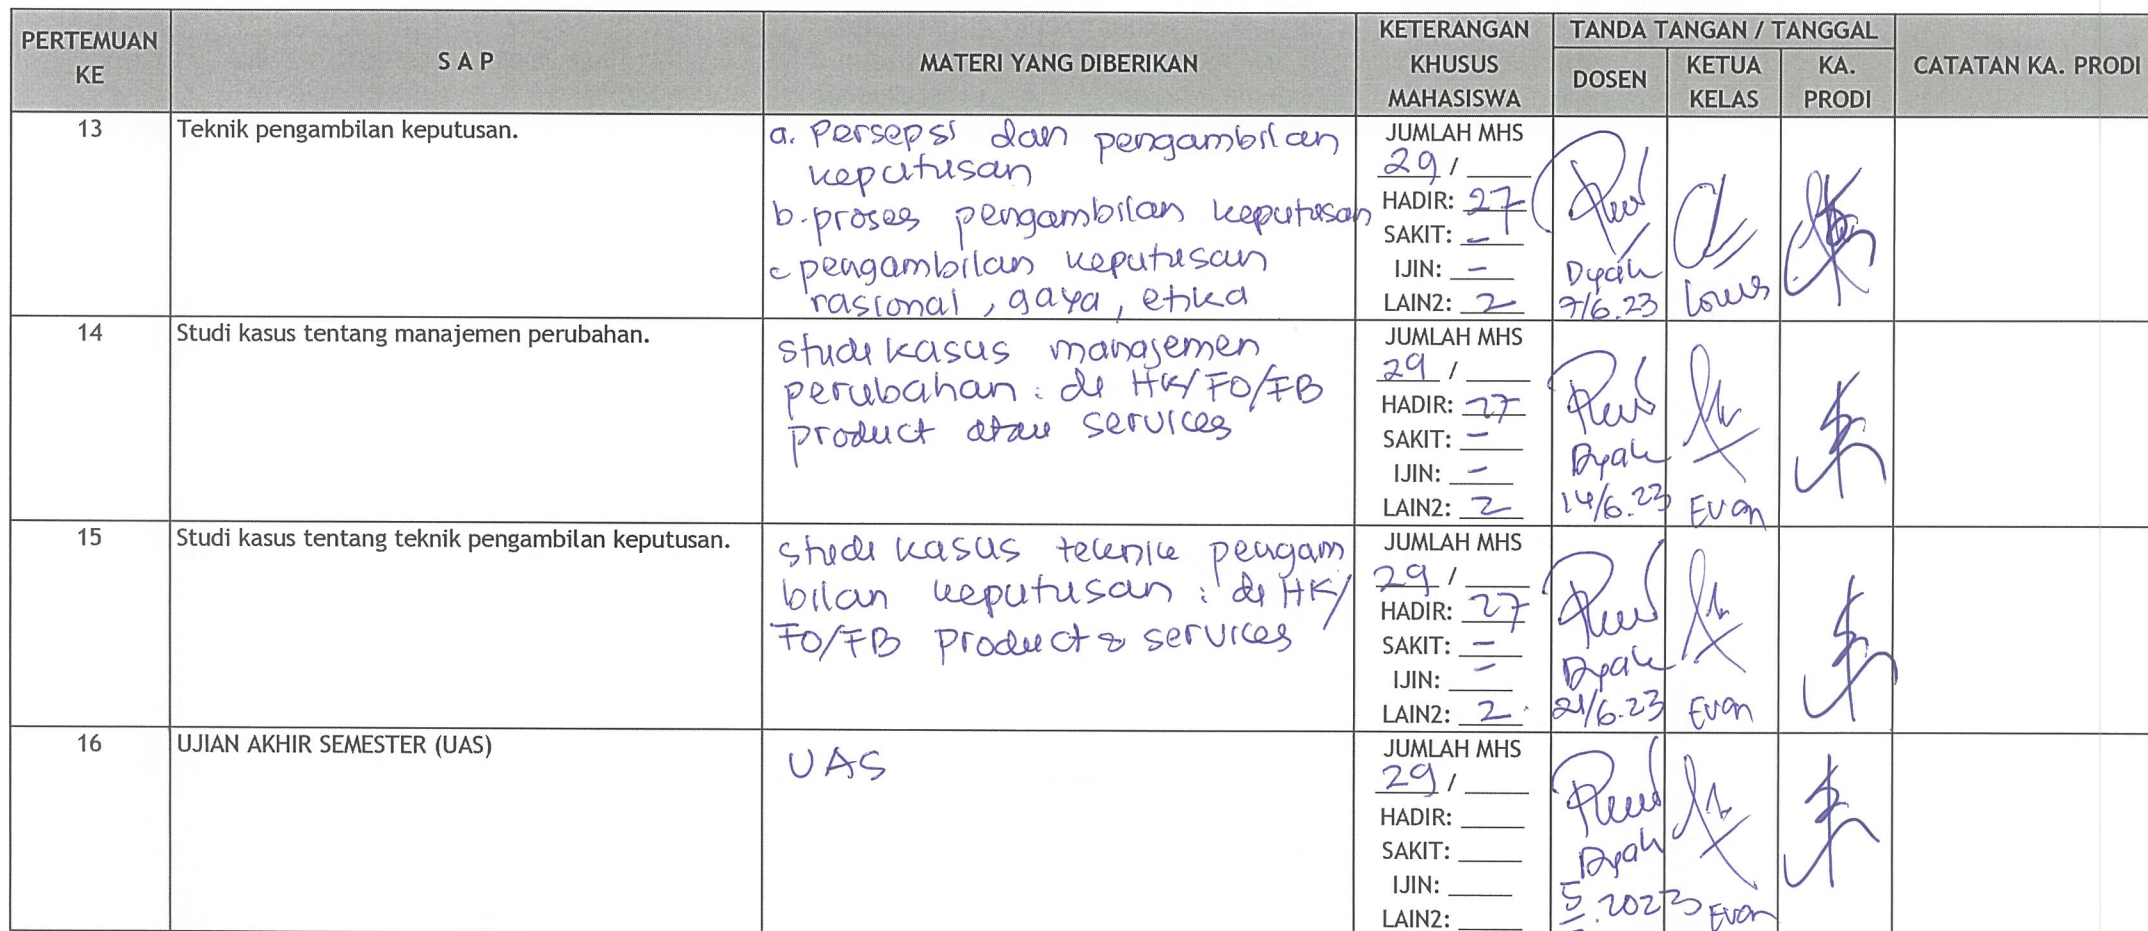 PERTEMUAN
KE
S A P
MATERI YANG DIBERIKAN
KETERANGAN
KHUSUS
MAHASISWA
TANDA TANGAN / TANGGAL
DOSEN
KETUA
KELAS
KA.
PRODI
CATATAN KA. PRODI
13
Teknik pengambilan keputusan.
a. Persepsi dan pengambilan
keputusan
b. proses pengambilan keputusan
c pengambilan keputusan
rasional, gaya, etika
JUMLAH MHS
29 / ____
HADIR: 27
SAKIT: -
IJIN: -
LAIN2: 2
Dyah
7/6.23
Louis
14
Studi kasus tentang manajemen perubahan.
studi kasus manajemen
perubahan : di HK/FO/FB
product atau services
JUMLAH MHS
29 / ____
HADIR: 27
SAKIT: -
IJIN: -
LAIN2: 2
Dyah
14/6.23
Evan
15
Studi kasus tentang teknik pengambilan keputusan.
studi kasus teknik pengam
bilan keputusan : di HK/
FO/FB product & services
JUMLAH MHS
29 / ____
HADIR: 27
SAKIT: -
IJIN: -
LAIN2: 2
Dyah
21/6.23
Evan
16
UJIAN AKHIR SEMESTER (UAS)
UAS
JUMLAH MHS
29 / ____
HADIR: ____
SAKIT: ____
IJIN: ____
LAIN2: ____
Dyah
5 . 2023
Evan